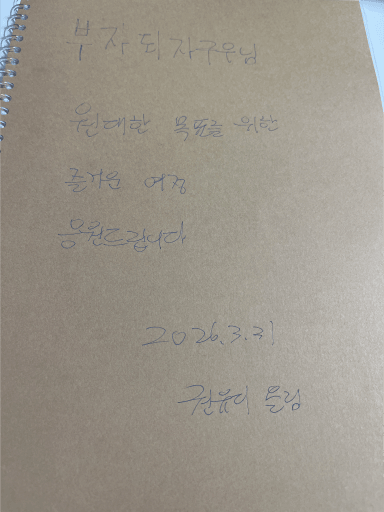 부자되자구우님
원대한 목표를 위한
즐거운 여정
응원드립니다
2026.3.31
드림